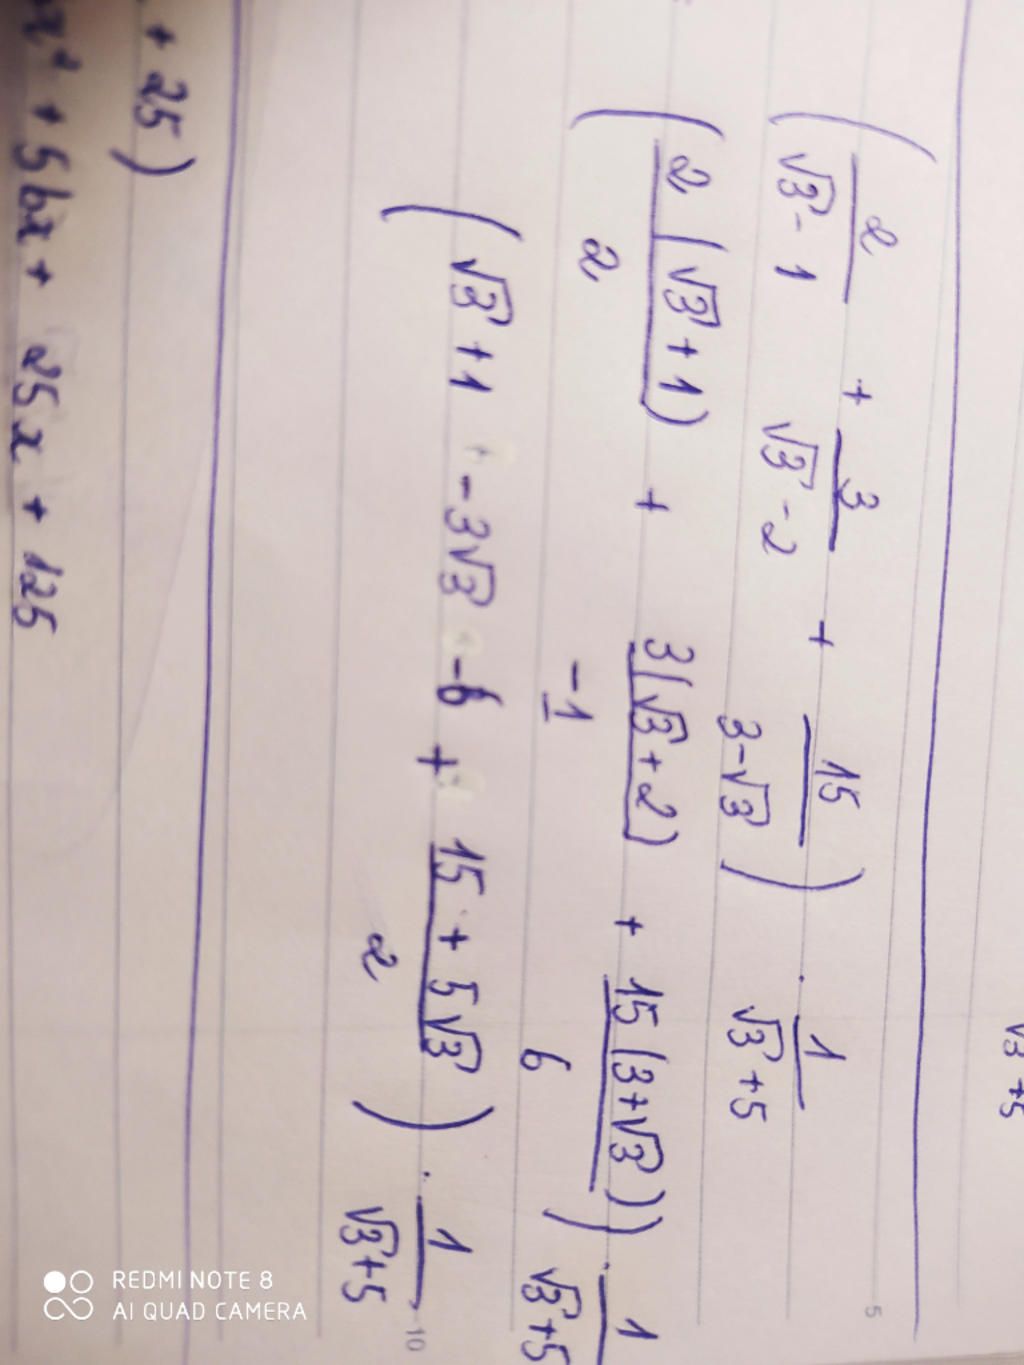 √3 +5
( 2/(√3 - 1) + 3/(√3 - 2) + 15/(3-√3) ) · 1/(√3 +5)
( 2(√3+1)/2 + 3(√3+2)/-1 + 15(3+√3)/6 ) · 1/(√3+5)
( √3+1 -3√3 -6 + (15+5√3)/2 ) · 1/(√3+5)
+ 25)
x² + 5bx + 25x + 125
5
10
REDMI NOTE 8
AI QUAD CAMERA